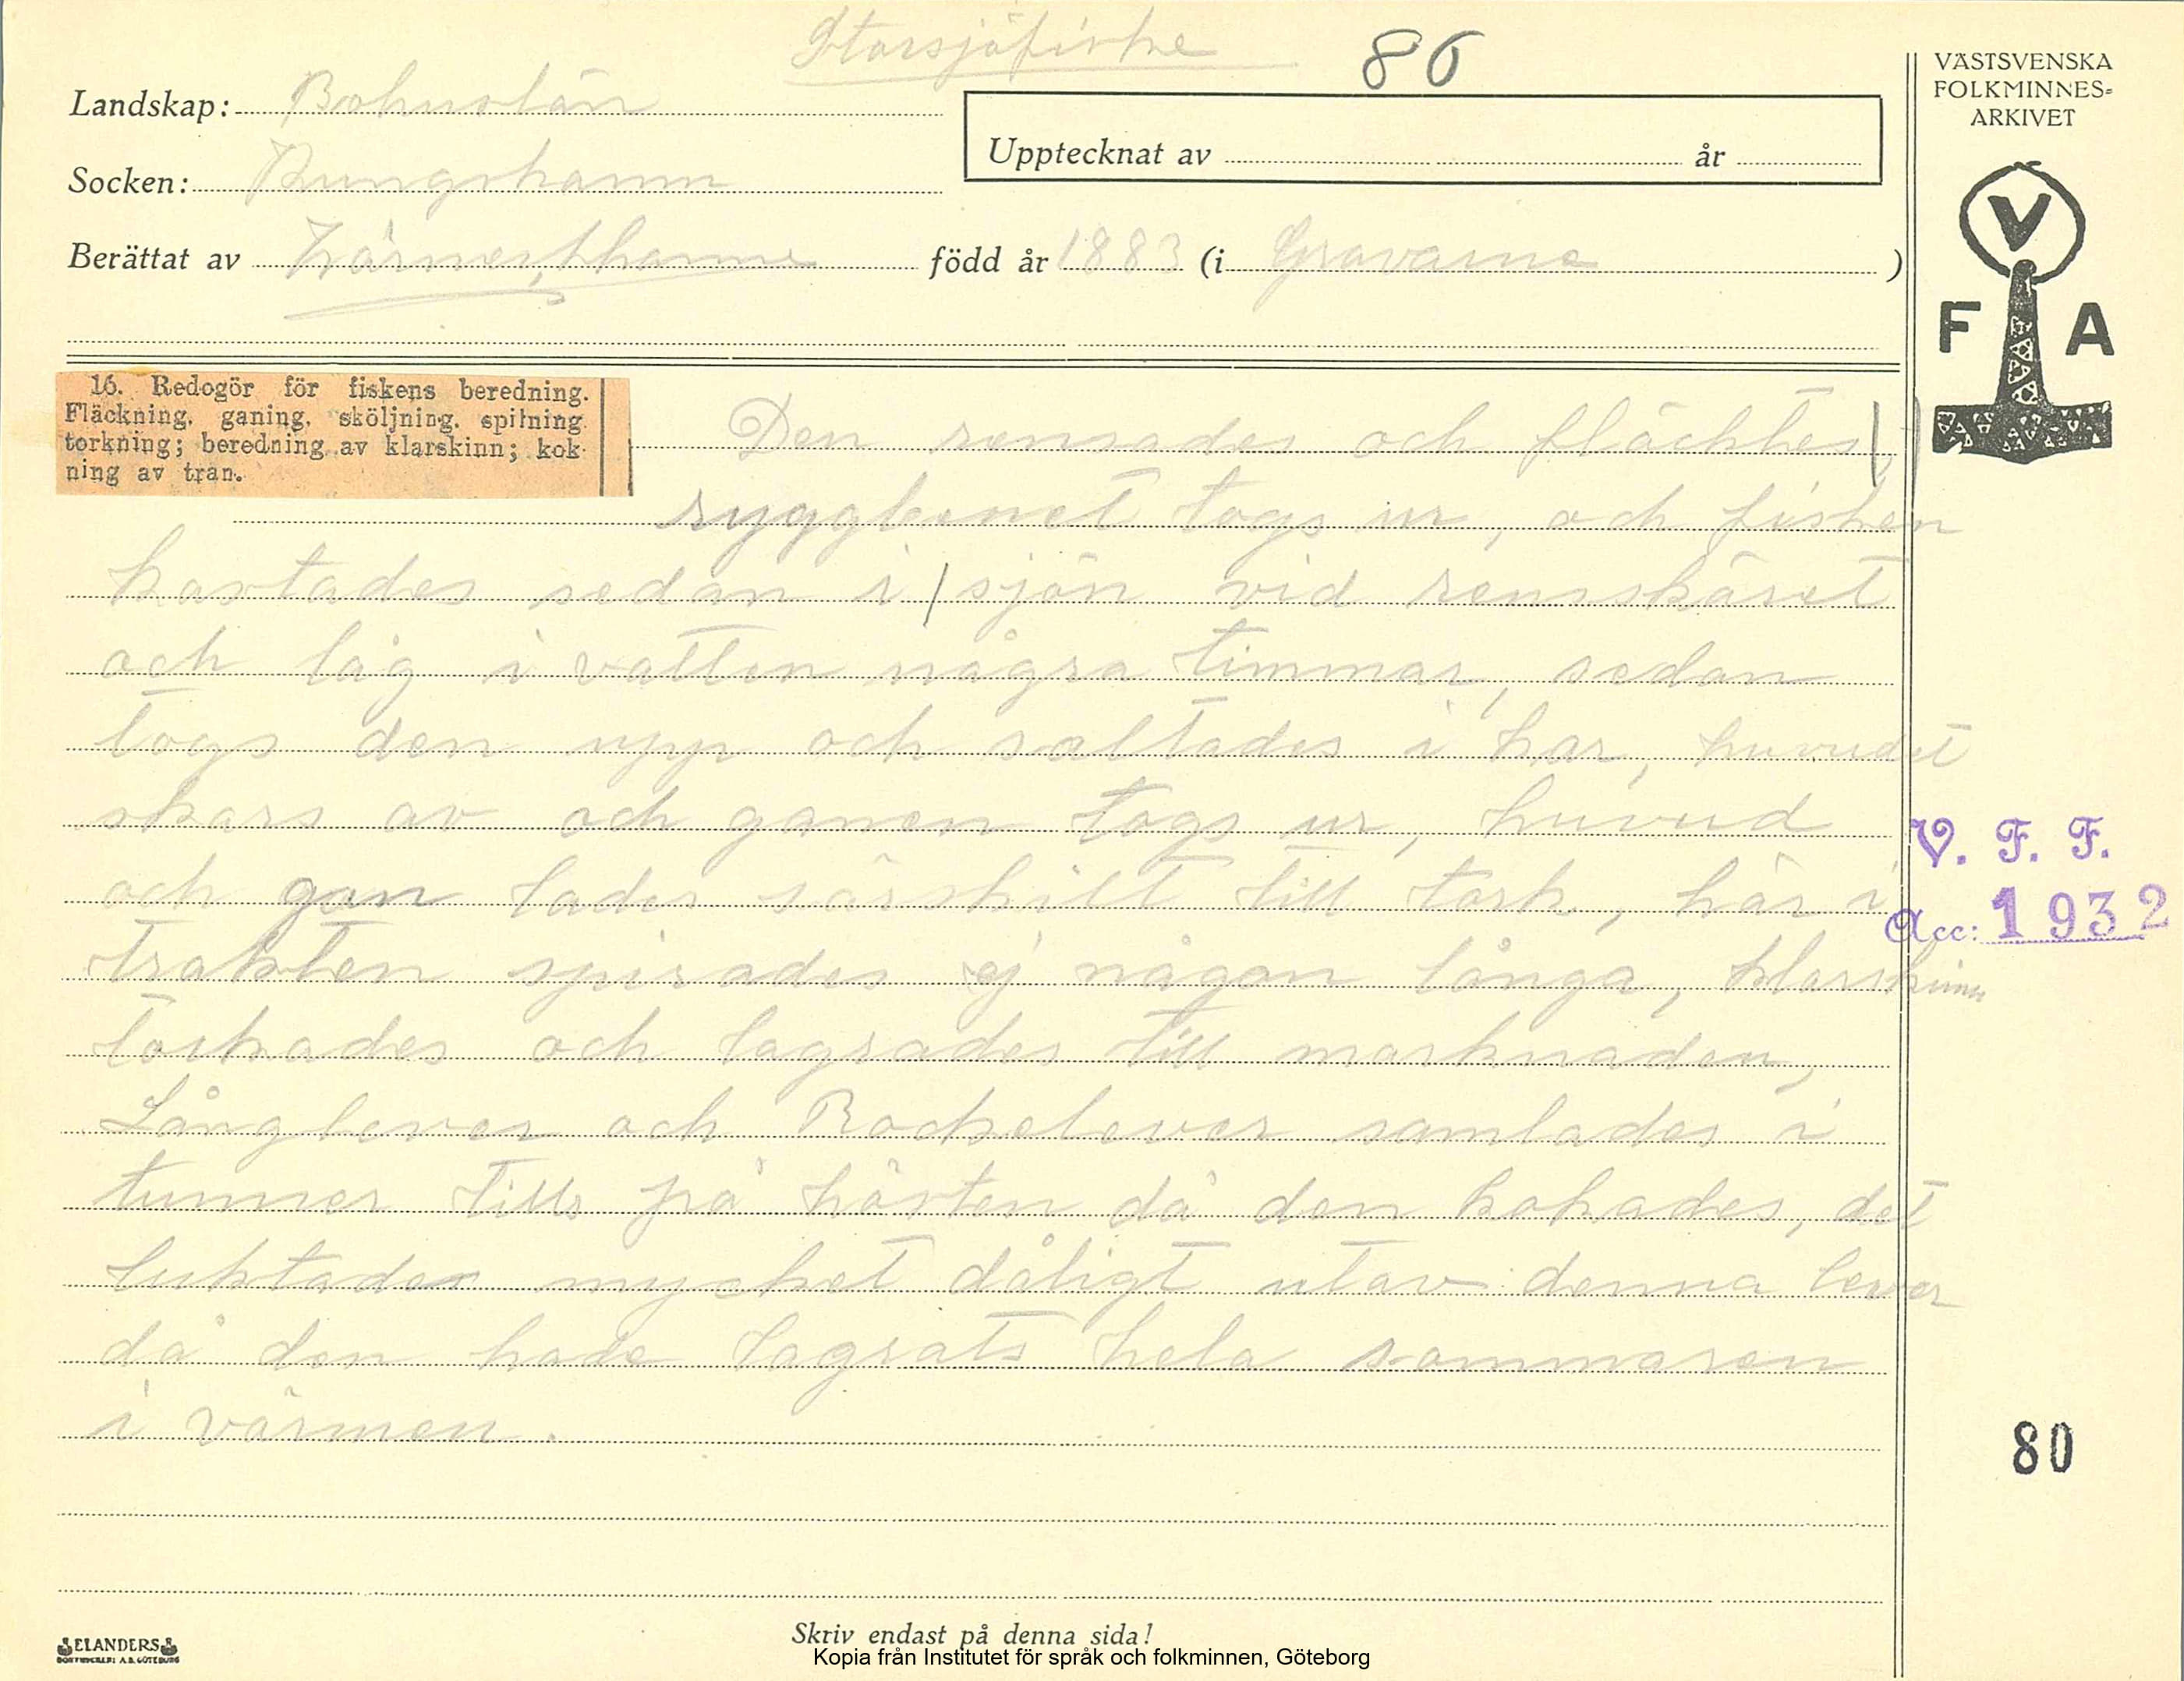 Storsjöfiske
86
Landskap: Bohuslän
Socken: Kungshamn
Upptecknat av år
Berättat av född år 1883 (i Gravarne )
VÄSTSVENSKA
FOLKMINNES=
ARKIVET
V
F A
16. Redogör för fiskens beredning.
Fläckning, ganing, sköljning, spitning
torkning; beredning av klarskinn; kok-
ning av tran.
Den rensades och fläcktes,
ryggbenet togs ur, och fisken
kastades sedan i sjön vid rensskäret
och låg i vatten några timmar, sedan
togs den upp och saltades i kar, huvudet
skars av och ganen togs ur, huvud
och gan lades särskilt till tork, här i
trakten spirades ej någon långa, klarskinn
torkades och lagrades till marknaden,
Långlever och Rockelever samlades i
tunner tills på hösten då den kokades, det
luktades mycket dåligt utav denna lever
då den hade lagrats hela sommaren
i värmen.
V. F. F.
Acc: 1932
80
Skriv endast på denna sida!
ELANDERS
Kopia från Institutet för språk och folkminnen, Göteborg